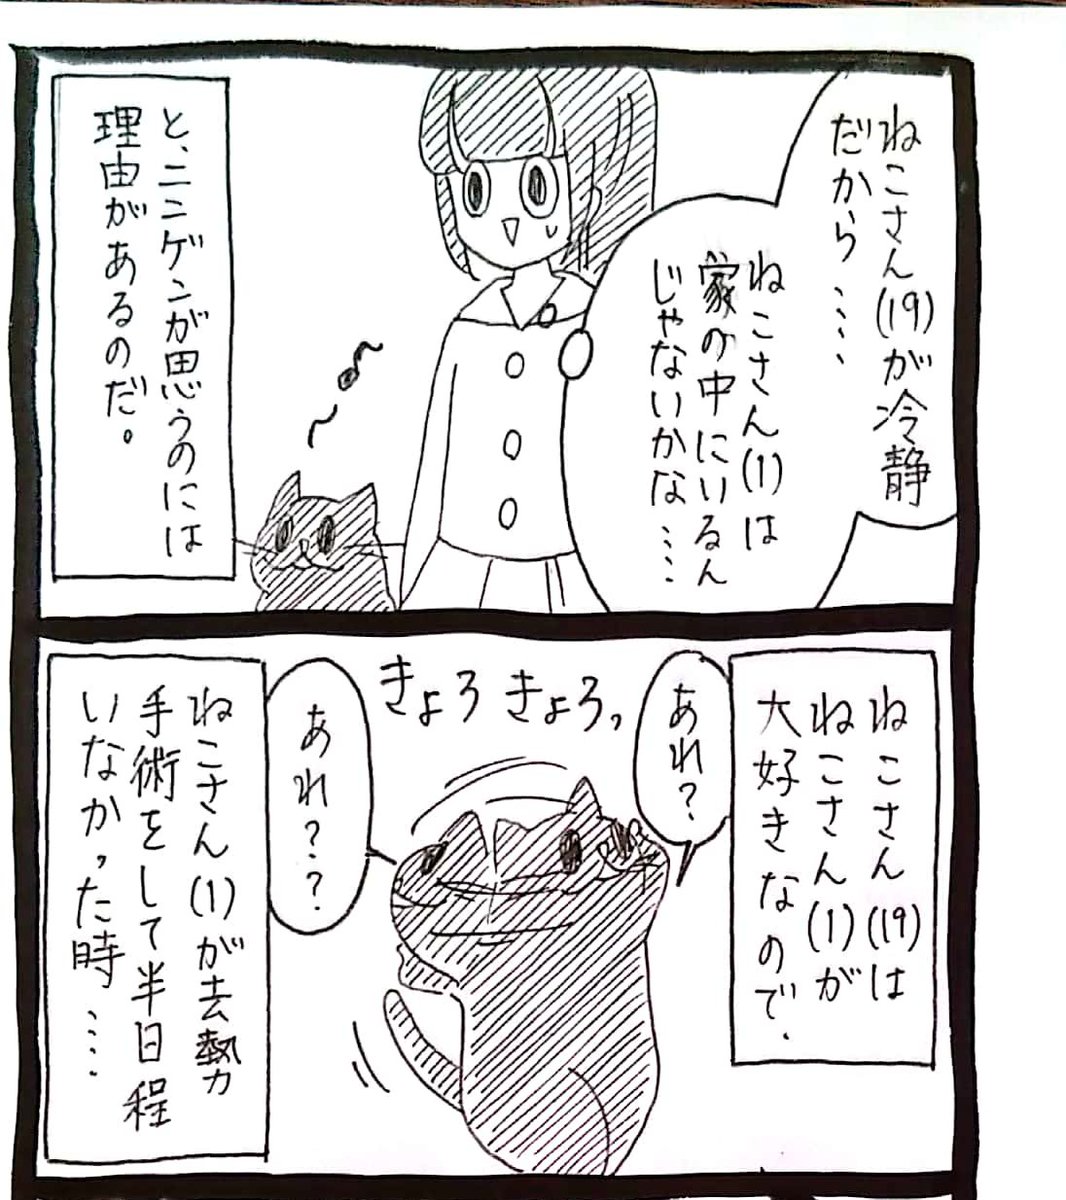 ねこさん(19)が冷静
だから‥‥
ねこさん(1)は
家の中にいるん
じゃないかな‥‥
と、ニンゲンが思うのには
理由があるのだ。
ねこさん(19)は
ねこさん(1)が
大好きなので、
あれ?
きょろきょろっ
あれ??
ねこさん(1)が去勢
手術をして半日程
いなかった時‥‥